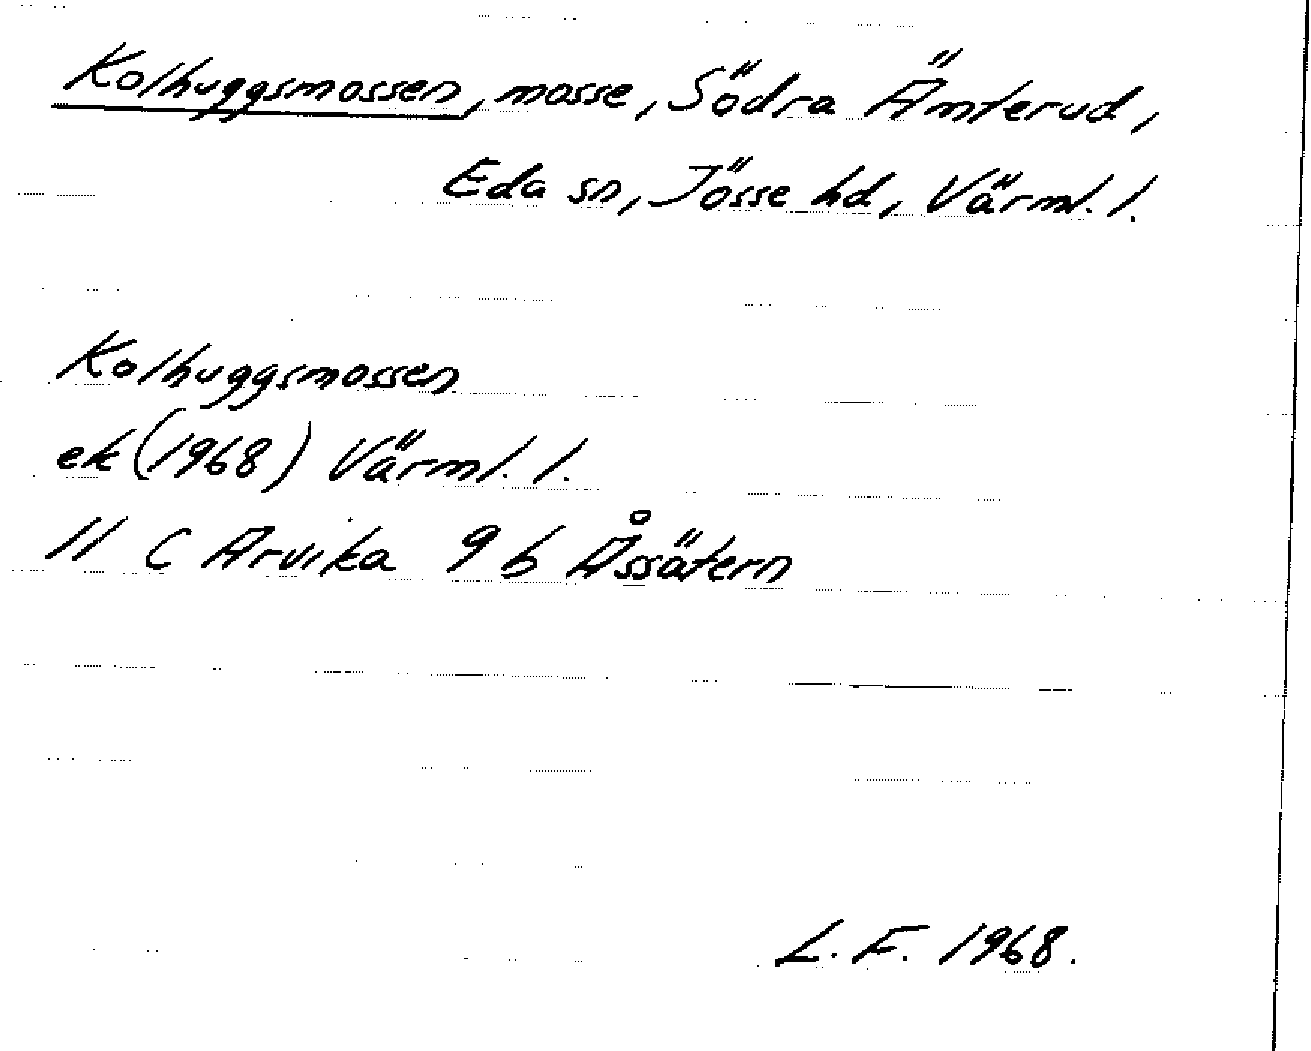 Kolhuggsmossen, mosse, Södra Ämterud,
Eda sn, Jösse hd, Värml. l.
Kolhuggsmossen
ek (1968) Värml. l.
11 C Arvika 9 b Åssätern
L. F. 1968.